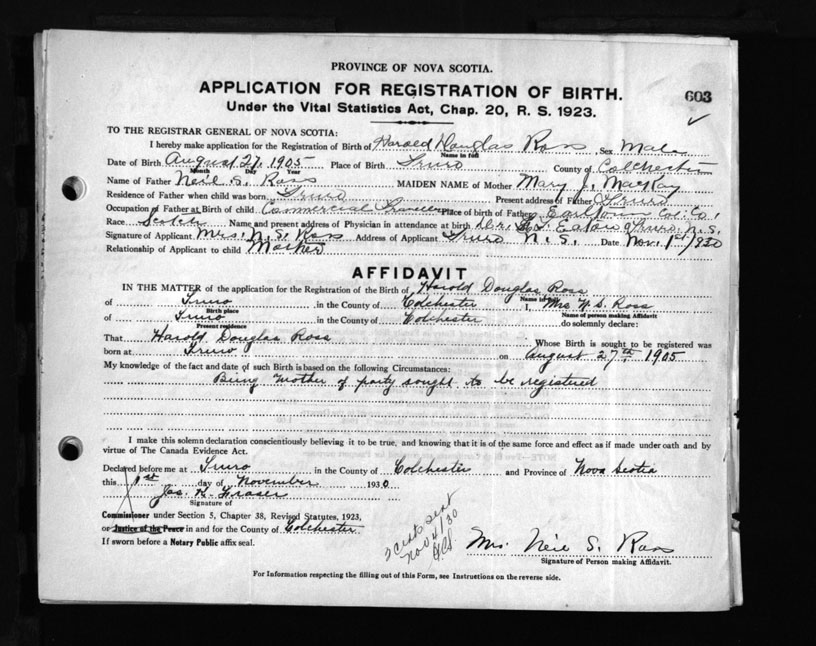 PROVINCE OF NOVA SCOTIA.
APPLICATION FOR REGISTRATION OF BIRTH. 603
Under the Vital Statistics Act, Chap. 20, R. S. 1923.
TO THE REGISTRAR GENERAL OF NOVA SCOTIA:
I hereby make application for the Registration of Birth of Harold Douglas Ross Sex Male
Name in full
Date of Birth August 27. 1905 Place of Birth Truro County of Colchester
Month Day Year
Name of Father Neil S. Ross MAIDEN NAME of Mother Mary J. MacKay
Residence of Father when child was born Truro Present address of Father Truro
Occupation of Father at Birth of child Commercial Traveller Place of birth of Father Earltown Col. Co.
Race Scotch Name and present address of Physician in attendance at birth Dr. Truro. N.S.
Signature of Applicant Mrs. N. S. Ross Address of Applicant Truro N. S. Date Nov. 1st/930
Relationship of Applicant to child Mother
AFFIDAVIT
IN THE MATTER of the application for the Registration of the Birth of Harold Douglas Ross
Name in full
of Truro in the County of Colchester I, Mrs N. S. Ross
Birth place Name of person making Affidavit
of Truro in the County of Colchester do solemnly declare:
Present residence
That Harold Douglas Ross Whose Birth is sought to be registered was
born at Truro on August 27th 1905
My knowledge of the fact and date of such Birth is based on the following Circumstances:
Being Mother of party sought to be registered
I make this solemn declaration conscientiously believing it to be true, and knowing that it is of the same force and effect as if made under oath and by
virtue of The Canada Evidence Act.
Declared before me at Truro in the County of Colchester and Province of Nova Scotia
this 1st day of November 1930
Jas. Fraser
Signature of
Commissioner under Section 5, Chapter 38, Revised Statutes, 1923,
or Justice of the Peace in and for the County of Colchester
If sworn before a Notary Public affix seal.
sent
Nov 4/30
Mrs. Neil S. Ross
Signature of Person making Affidavit.
For Information respecting the filling out of this Form, see Instructions on the reverse side.